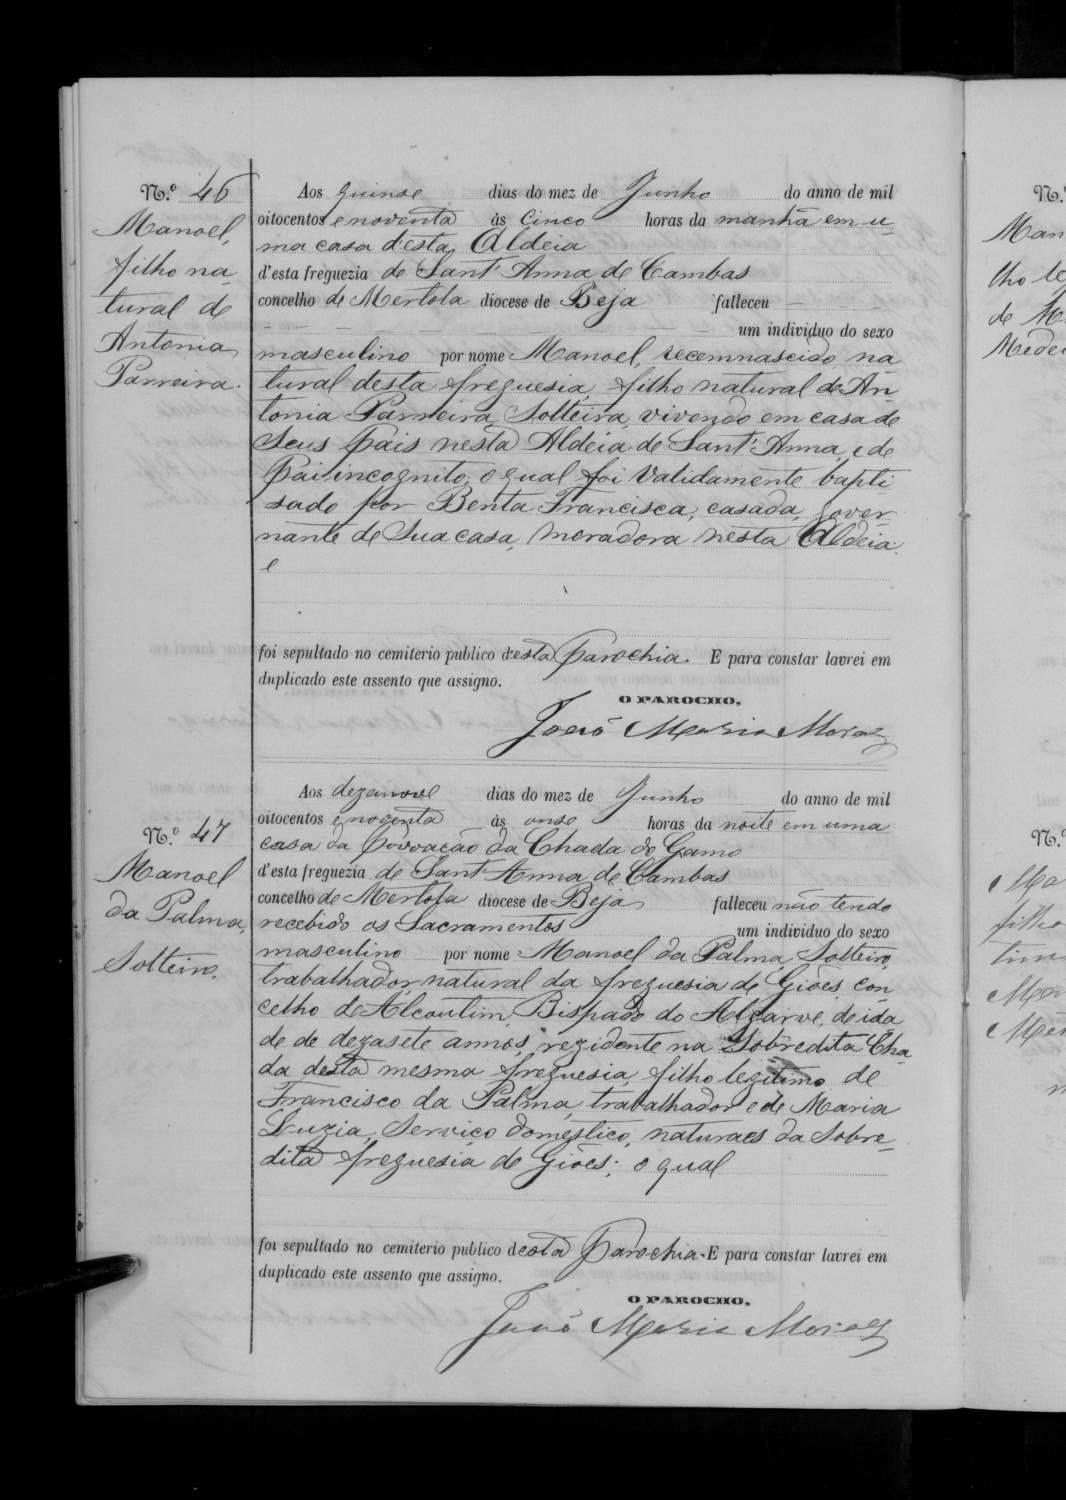 N.º 46
Manoel,
filho na-
tural de
Antonia
Parreira.
Aos quinse dias do mez de Junho do anno de mil
oitocentos e noventa ás Cinco horas da manhã em u-
ma casa d'esta Aldeia
d'esta freguezia de Sant'Anna de Cambas
concelho de Mertola diocese de Beja falleceu
um individuo do sexo
masculino por nome Manoel, recemnascido, na
tural desta freguesia, filho natural de An-
tonia Parreira, Solteira, vivendo em casa de
Seus pais nesta Aldeia de Sant'Anna, e de
Pai incognito; o qual foi validamente bapti
sado por Benta Francisca, casada, gover-
nante de Sua casa, moradora nesta Aldeia.
e
foi sepultado no cemiterio publico desta parochia. E para constar lavrei em
duplicado este assento que assigno.
O PAROCHO,
João Maria Moraes
N.º 47
Manoel
da Palma,
Solteiro.
Aos dezanove dias do mez de Junho do anno de mil
oitocentos e noventa ás onse horas da noite em uma
casa da Povoação da Chada do Gamo
d'esta freguezia de Sant'Anna de Cambas
concelho de Mertola diocese de Beja falleceu não tendo
recebido os Sacramentos um individuo do sexo
masculino por nome Manoel da Palma, Solteiro,
trabalhador, natural da freguesia de Giões, con-
celho de Alcoutim, Bispado do Algarve, de ida
de de dezasete annos, rezidente na Sobredita Cha-
da desta mesma freguesia, filho legitimo de
Francisco da Palma, trabalhador e de Maria
Luzia, Serviço domestico, naturaes da Sobre-
dita freguesia de Giões; o qual
foi sepultado no cemiterio publico desta Parochia. E para constar lavrei em
duplicado este assento que assigno.
O PAROCHO,
João Maria Moraes
N.º
Man
lho le
de M
Medei
N.º
Ma
filho